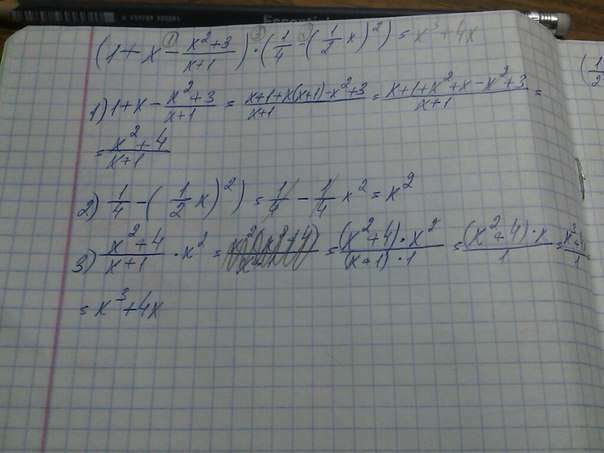 Essentiel
(1 + x - \frac{x²+3}{x+1}) · (\frac{1}{4} - (\frac{1}{2}x)²) = x³+4x
1) 1 + x - \frac{x²+3}{x+1} = \frac{x+1+x(x+1)-x²+3}{x+1} = \frac{x+1+x²+x-x²+3}{x+1} =
= \frac{x²+4}{x+1}
2) \frac{1}{4} - (\frac{1}{2}x)²) = \frac{1}{4} - \frac{1}{4}x² = x²
3) \frac{x²+4}{x+1} · x² = = \frac{(x²+4)·x²}{(x+1)·1} = \frac{(x²+4)·x}{1} =
= x³+4x